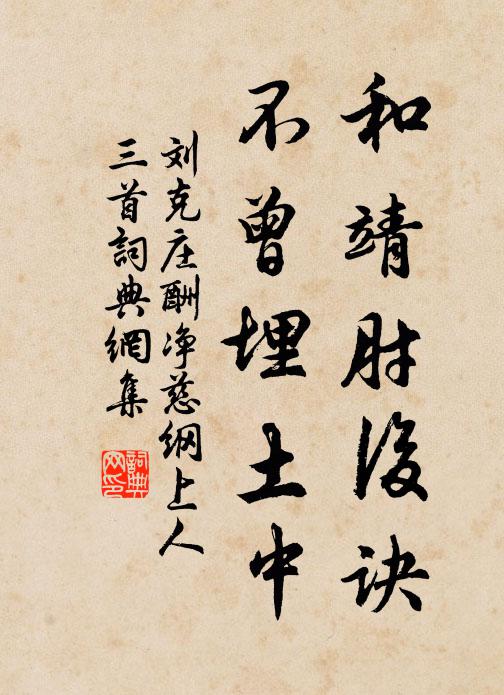 和靖肘後訣
不曾埋土中
刘克庄酬净慈纲上人
三首詞典網集
詞典網印